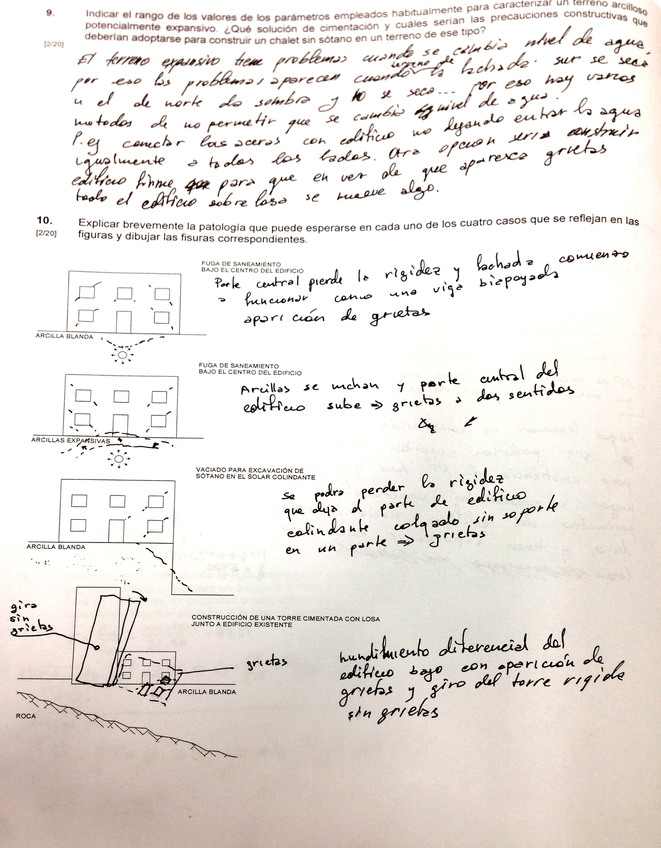 9. Indicar el rango de los valores de los parámetros empleados habitualmente para caracterizar un terreno arcilloso
potencialmente expansivo. ¿Qué solución de cimentación y cuáles serían las precauciones constructivas que
[2/20] deberían adoptarse para construir un chalet sin sótano en un terreno de ese tipo?
El terreno expansivo tiene problemas cuando se cambia nivel de agua,
por eso los problemas aparecen cuando terreno de la fachada sur se seca
y el de norte da sombra y no se seca... Por eso hay varios
metodos de no permetir que se cambia nivel de agua.
P.ej conectar las aceras con edificio no dejando entrar la agua
igualmente a todos los lados. Otra opción seria construir
edificio firme para que en vez de que aparesca grietas
todo el edificio sobre losa se mueve algo.
10. Explicar brevemente la patología que puede esperarse en cada uno de los cuatro casos que se reflejan en las
[2/20] figuras y dibujar las fisuras correspondientes.
FUGA DE SANEAMIENTO
BAJO EL CENTRO DEL EDIFICIO
Parte central pierde la rigidez y fachada comienza
a funcionar como una viga biapoyada
aparición de grietas
ARCILLA BLANDA
FUGA DE SANEAMIENTO
BAJO EL CENTRO DEL EDIFICIO
Arcillas se inchan y parte central del
edificio sube ⇒ grietas a dos sentidos
ARCILLAS EXPANSIVAS
VACIADO PARA EXCAVACIÓN DE
SÓTANO EN EL SOLAR COLINDANTE
se podra perder la rigidez
que deja el parte de edificio
colindante colgado sin soporte
en un parte ⇒ grietas
ARCILLA BLANDA
CONSTRUCCIÓN DE UNA TORRE CIMENTADA CON LOSA
JUNTO A EDIFICIO EXISTENTE
gira
sin
grietas
grietas
hundimiento diferencial del
edificio bajo con aparición de
grietas y giro del torre rigida
sin grietas
ARCILLA BLANDA
ROCA